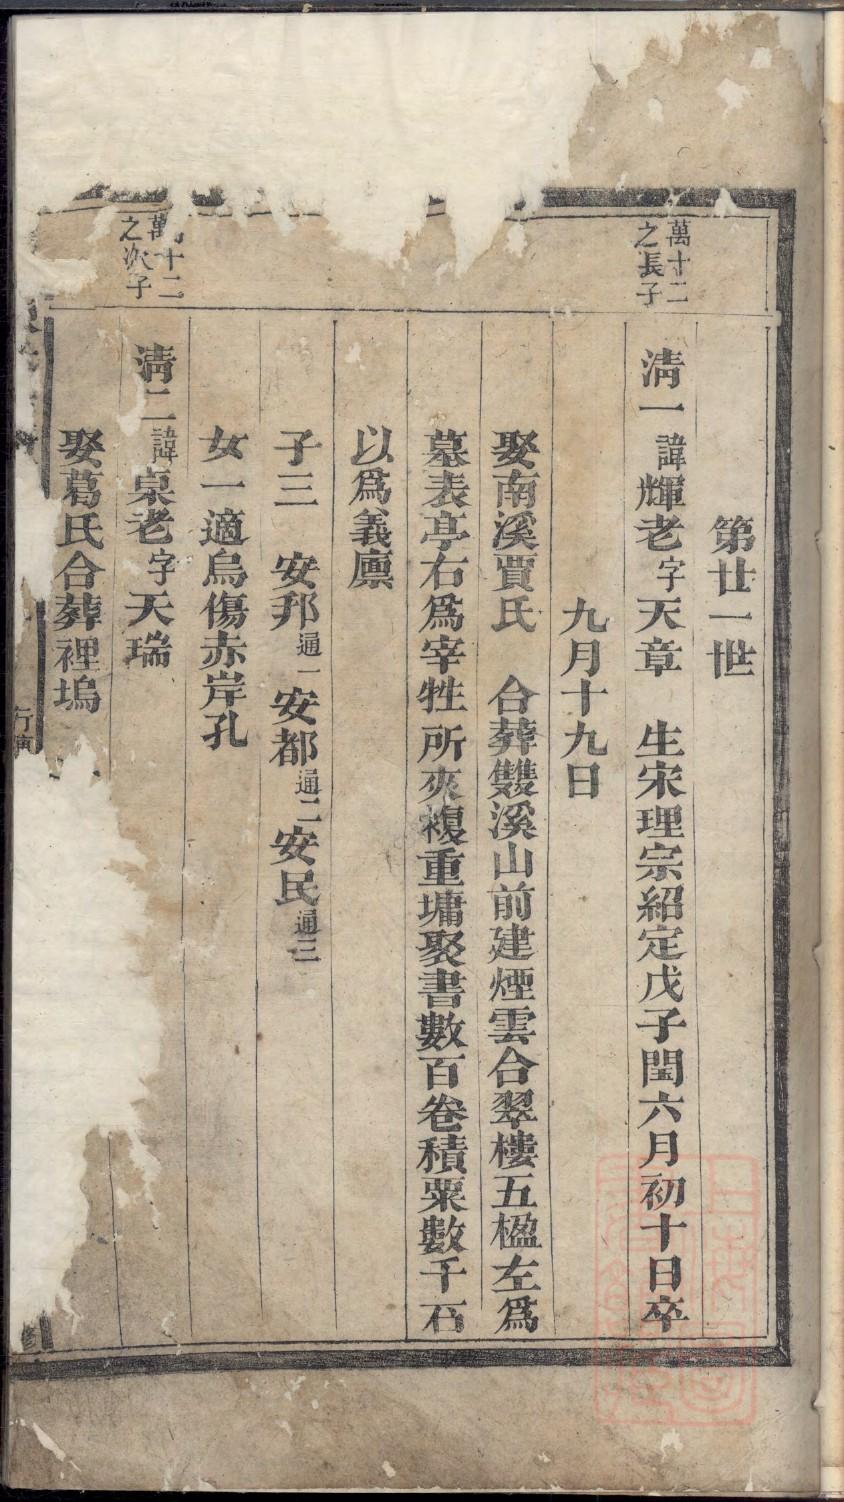 第廿一世
萬十二
之長子
淸一諱輝老字天章　生宋理宗紹定戊子閏六月初十日卒
九月十九日
娶南溪賈氏　合葬雙溪山前建煙雲合翠樓五楹左爲
墓表亭右爲宰牲所夾複重墉聚書數百卷積粟數千石
以爲義廩
子三　安邦通一安都通二安民通三
女一適烏傷赤岸孔
萬十二
之次子
淸二諱泉老字天瑞
娶葛氏合葬裡塢